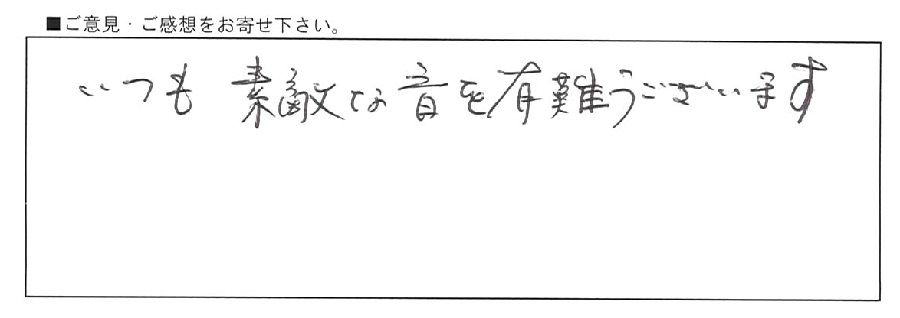 ■ご意見・ご感想をお寄せ下さい。
いつも素敵な音を有難うございます